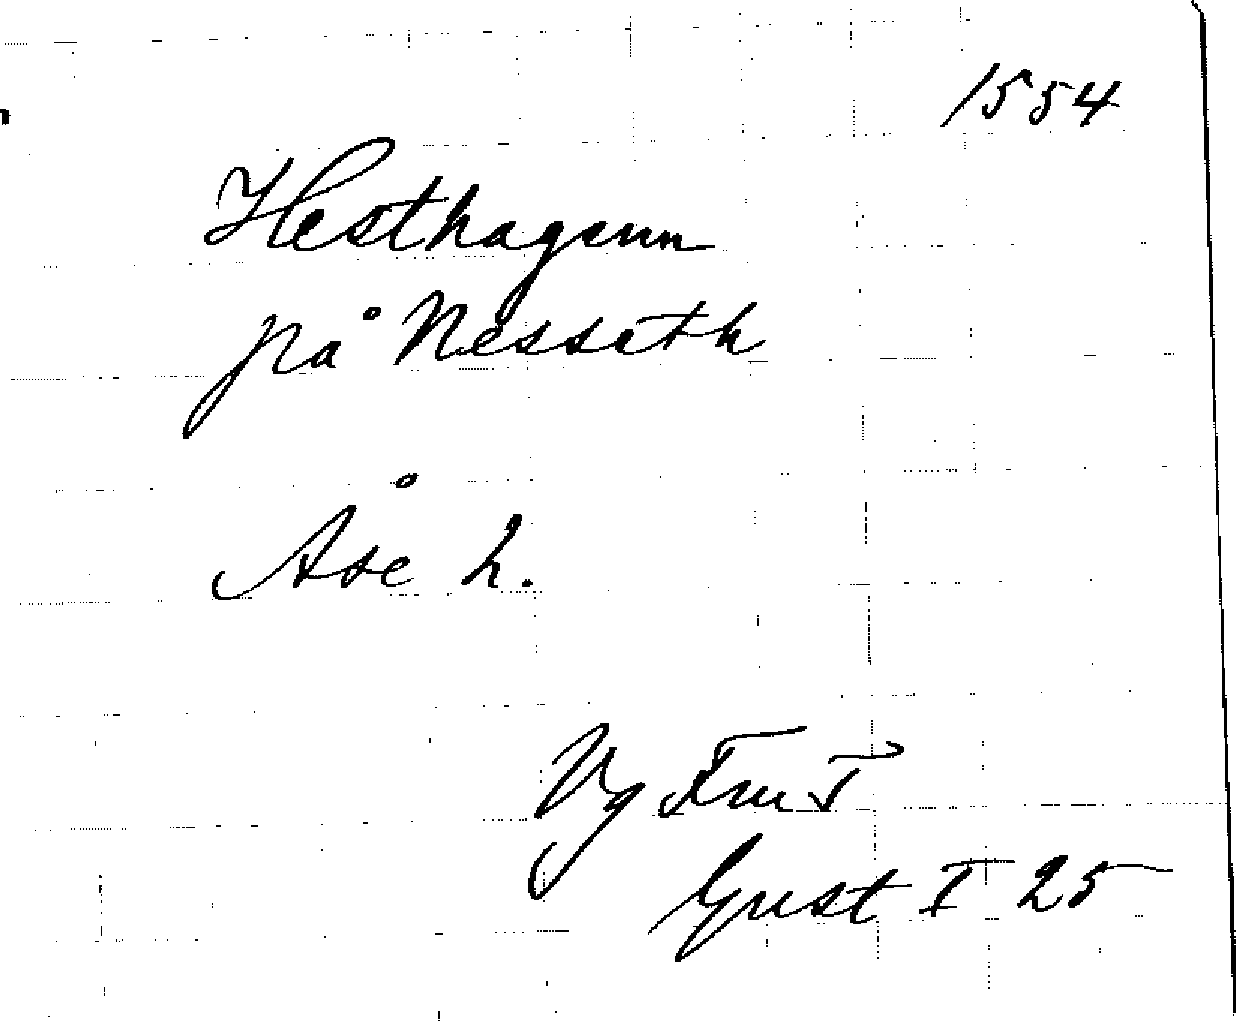 1554
Hesthagenn
på Nesseth
Åse h.
Vg Fru T
Gust I 25